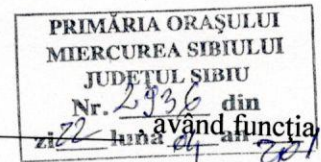 PRIMĂRIA ORAŞULUI
MIERCUREA SIBIULUI
JUDEŢUL SIBIU
Nr. 2936 din
zi 22 luna 04 an
, având funcţia